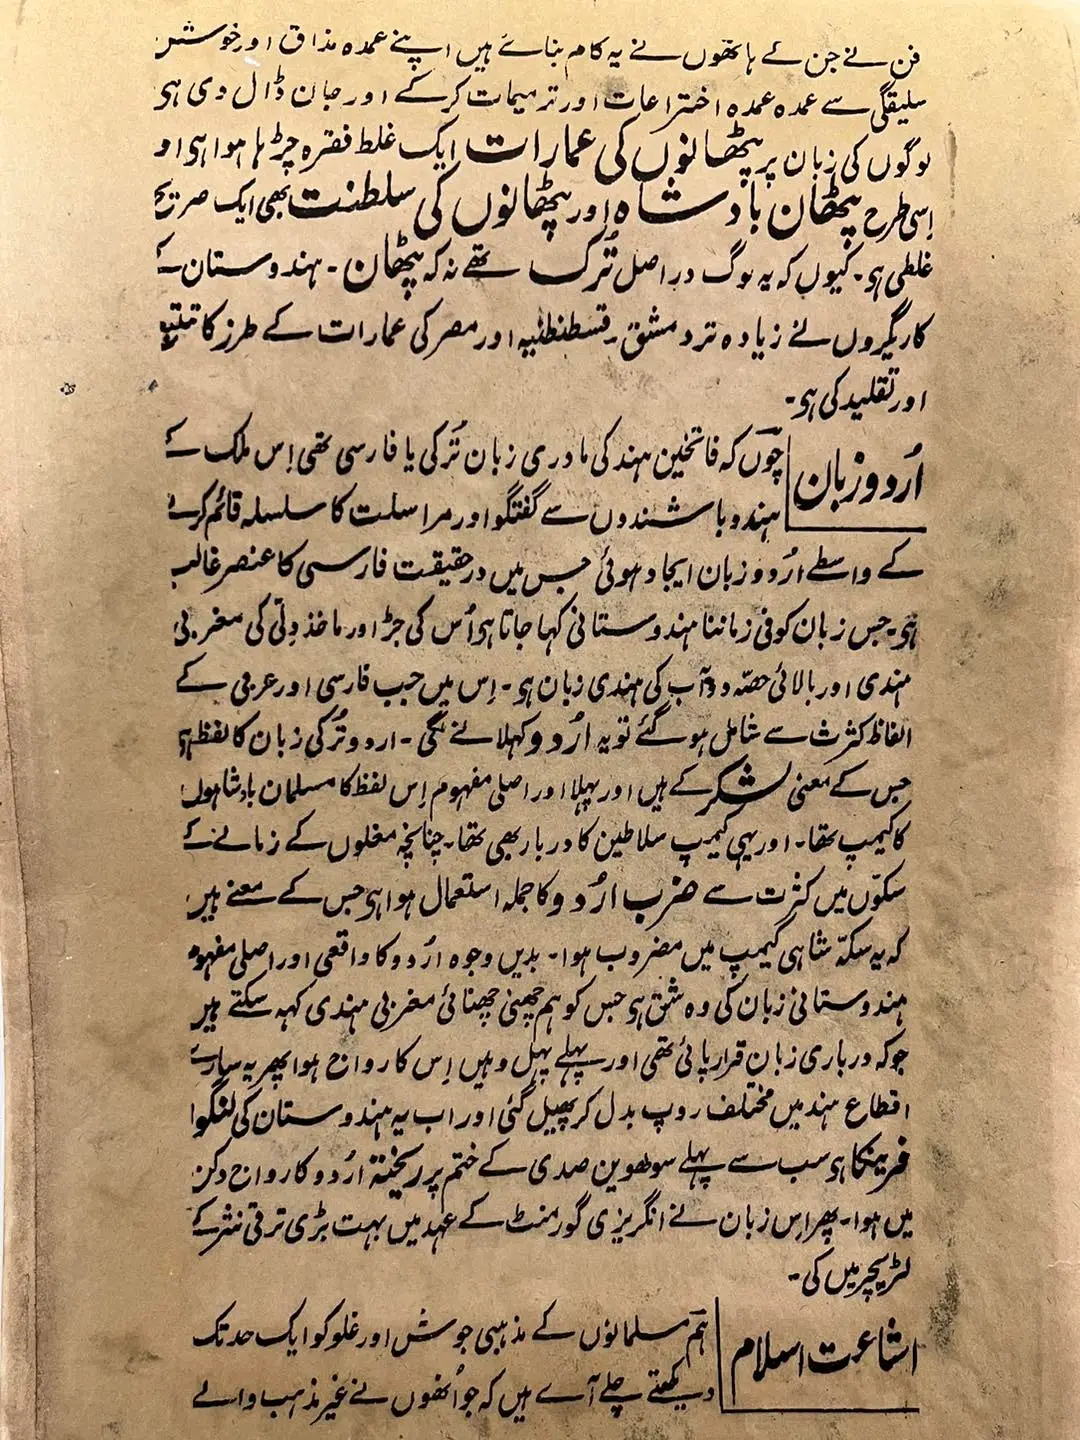 فن نے جن کے ہاتھوں نے یہ کام بنائے ہیں اپنے عمدہ مذاق اور خوش
سلیقگی سے عمدہ عمدہ اختراعات اور ترمیمات کر کے اور جان ڈال دی ہی
لوگوں کی زبان پر پٹھانوں کی عمارات ایک غلط فقرہ چڑہا ہوا ہی او
اِسی طرح پٹھان بادشاہ اور پٹھانوں کی سلطنت بھی ایک صریح
غلطی ہی۔ کیوں کہ یہ لوگ در اصل تُرک تھے نہ کہ پٹھان۔ ہندوستان کے
کاریگروں نے زیادہ تر دمشق۔ قسطنطنیہ اور مصر کی عمارات کے طرز کا تتبع
اور تقلید کی ہی۔
اُردو زبان
چوں کہ فاتحین ہند کی مادری زبان تُرکی یا فارسی تھی اِس ملک کے
ہندو باشندوں سے گفتگو اور مراسلت کا سلسلہ قائم کرنے
کے واسطے اُردو زبان ایجاد ہوئی جس میں در حقیقت فارسی کا عنصر غالب
ہی۔ جس زبان کو فی زماننا ہندوستانی کہا جاتا ہی اُس کی جڑ اور ماخذ دِلّی کی مغربی
ہندی اور بالائی حصّہ دوآب کی ہندی زبان ہی۔ اِس میں جب فارسی اور عربی کے
الفاظ کثرت سے شامل ہو گئے تو یہ اُردو کہلانے لگی۔ اردو تُرکی زبان کا لفظ ہی
جس کے معنی لشکر کے ہیں اور پہلا اور اصلی مفہوم اِس لفظ کا مسلمان بادشاہوں
کا کیمپ تھا۔ اور یہی کیمپ سلاطین کا دربار بھی تھا۔ چنانچہ مغلوں کے زمانے کے
سکّوں میں کثرت سے ضرب اُردو کا جملہ استعمال ہوا ہی جس کے معنے ہیں
کہ یہ سکّہ شاہی کیمپ میں مضروب ہوا۔ بدیں وجوہ اُردو کا واقعی اور اصلی مفہوم
ہندوستانی زبان کی وہ شق ہی جس کو ہم چھنی چھنائی مغربی ہندی کہہ سکتے ہیں
جو کہ درباری زبان قرار پائی تھی اور پہلے پہل وہیں اِس کا رواج ہوا پھر یہ سارے
اقطاع ہند میں مختلف روپ بدل کر پھیل گئی اور اب یہ ہندوستان کی لنگوا
فرینکا ہی سب سے پہلے سولھویں صدی کے ختم پر ریختۃ اُردو کا رواج دکن
میں ہوا۔ پھر اِس زبان نے انگریزی گورمنٹ کے عہد میں بہت بڑی ترقی نثر کے
لٹریچر میں کی۔
اشاعت اسلام
ہم مسلمانوں کے مذہبی جوش اور غلو کو ایک حد تک
دیکھتے چلے آے ہیں کہ جو اُنھوں نے غیر مذہب والے